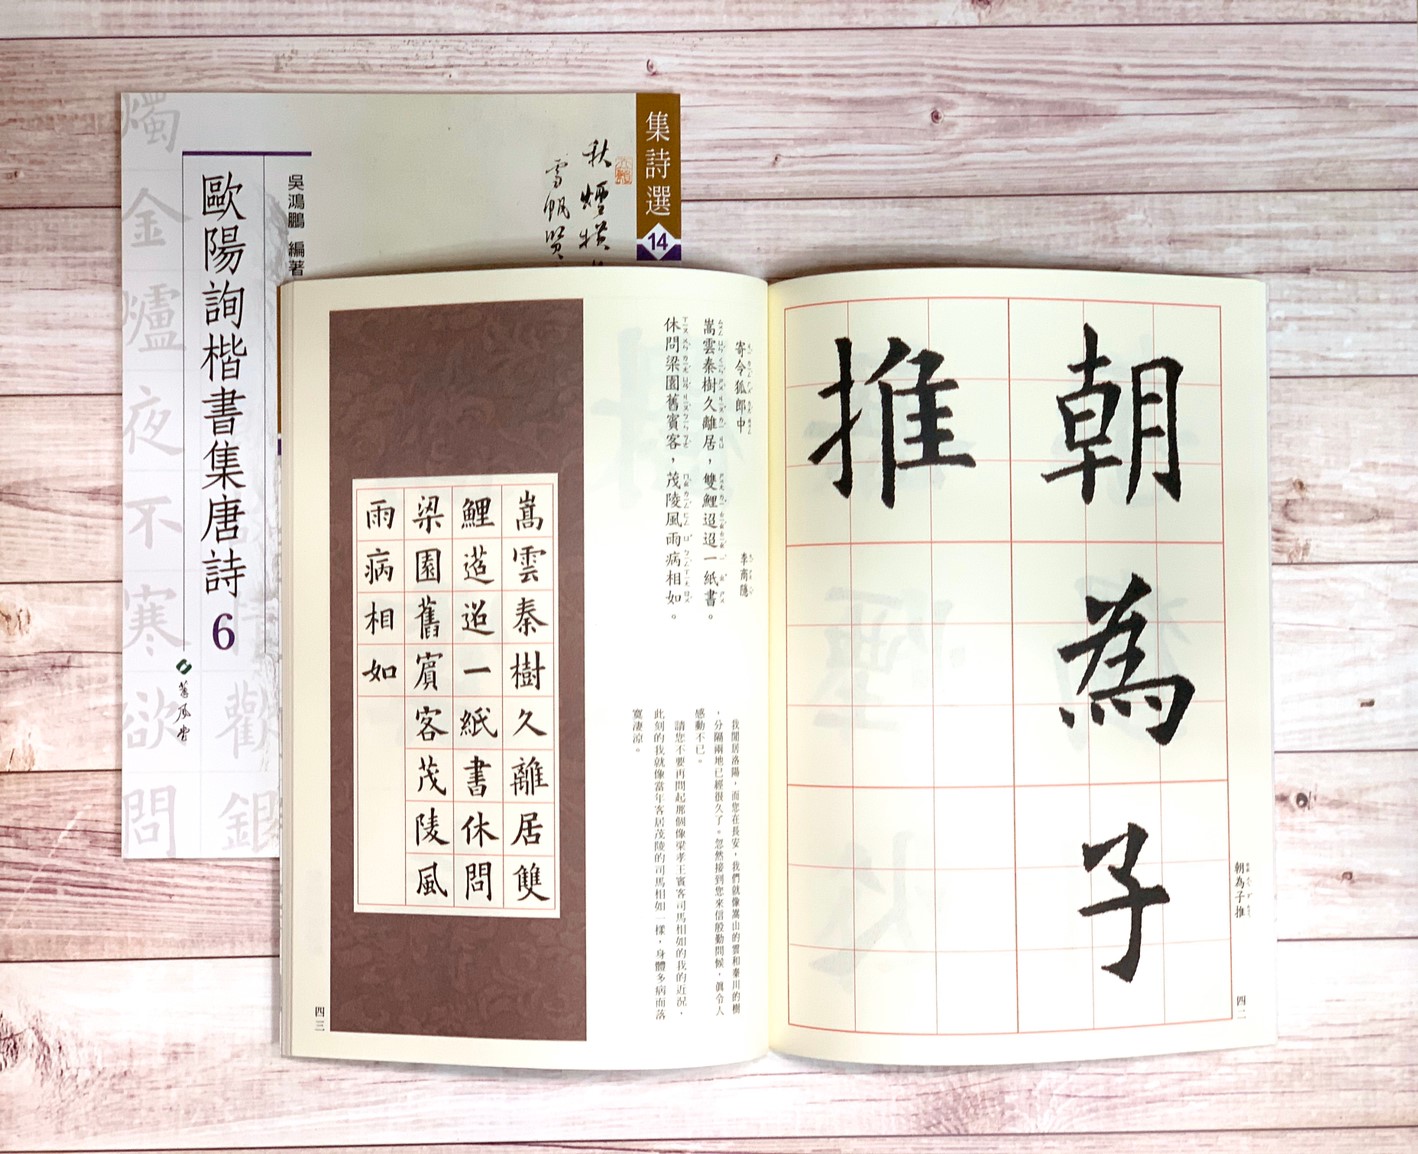 集詩選
14
秋煙
雪帆賢
吳鴻鵬 編著
歐陽詢楷書集唐詩6
燭金爐夜不寒欲問
歡銀
朝為子
推
朝為子推
四二
寄令狐郎中 李商隱
嵩雲秦樹久離居，雙鯉迢迢一紙書。
休問梁園舊賓客，茂陵風雨病相如。
我閒居洛陽，而您在長安，我們就像嵩山的雲和秦川的樹
，分隔兩地已經很久了。忽然接到您來信殷勤問候，真令人
感動不已。
請您不要再問起那個像梁孝王賓客司馬相如的我的近況，
此刻的我就像當年客居茂陵的司馬相如一樣，身體多病而落
寞淒涼。
嵩雲秦樹久離居雙
鯉迢迢一紙書休問
梁園舊賓客茂陵風
雨病相如
四三